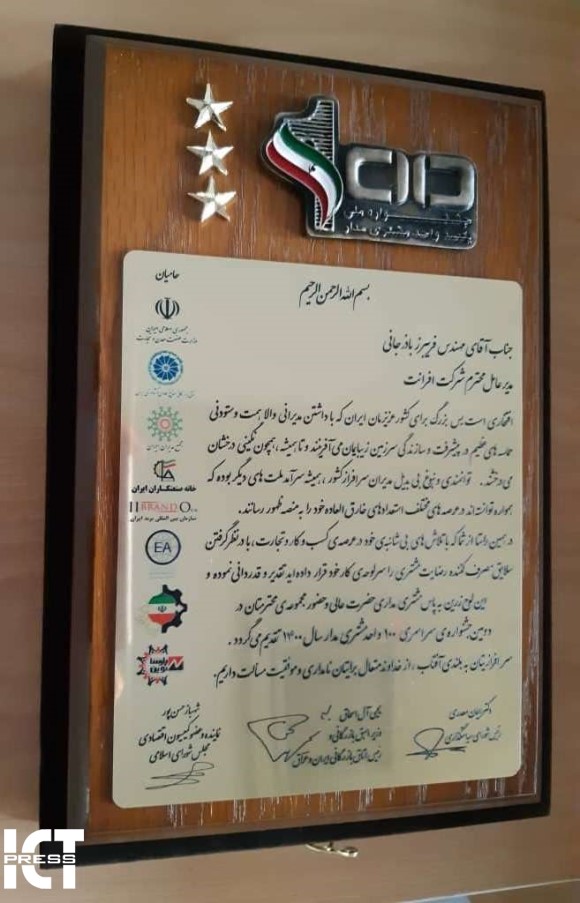 100
جشنواره ملی
یکصد واحد مشتری مدار
بسم الله الرحمن الرحیم
جناب آقای مهندس فریبرز باذرجانی
مدیر عامل محترم شرکت افرانت
افتخاری است بس بزرگ برای کشور عزیزمان ایران که با داشتن مدیرانی والا همت و ستودنی
حماسه های عظیم در پیشرفت و سازندگی سرزمین زیبایمان می آفرینند و تا همیشه، همچون نگینی درخشان
می درخشند. توانمندی و نبوغ بی بدیل مدیران سرافراز کشور، همیشه سرآمد ملت های دیگر بوده که
همواره توانسته اند در عرصه های مختلف استعدادهای خارق العاده خود را به منصه ظهور رسانند.
در همین راستا از شما که با تلاش های بی شائبه ی خود در عرصه ی کسب و کار و تجارت، با در نظر گرفتن
سلایق مصرف کننده رضایت مشتری را سرلوحه ی کار خود قرار داده اید تقدیر و قدردانی نموده و
این لوح زرین به پاس مشتری مداری حضرت عالی و حضور مجموعه ی محترمتان در
دومین جشنواره ی سراسری ۱۰۰ واحد مشتری مدار سال ۱۴۰۰ تقدیم می گردد.
سرافرازیتان به بلندی آفتاب، از خداوند متعال برایتان نامداری و موفقیت مسألت داریم.
رئیس شورای سیاستگذاری
یحیی آل اسحاق
وزیر اسبق بازرگانی و
رئیس اتاق بازرگانی ایران و عراق
شهباز حسن پور
نماینده و عضو کمیسیون اقتصادی
مجلس شورای اسلامی
حامیان
جمهوری اسلامی ایران
وزارت صنعت، معدن و تجارت
مجمع مدیران ایران
خانه صنعتگران ایران
IBRAND
سازمان بین المللی برند ایران
EA
ICT
PRESS